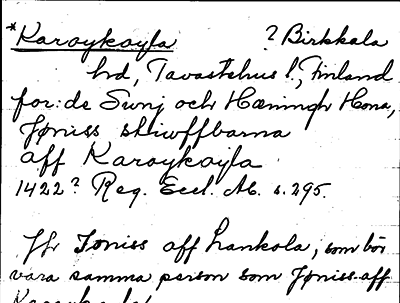 *Karoykoyla ? Birkkala
hd, Tavastehus l, Finland
for: de Sunj och Hæmingh Hona,
Jøniss skiwffbarna
aff Karoykoyla
1422? Reg. Eccl. Ab. s. 295.
Jfr Joniss aff Lankola, som bör
vara samma person som Jøniss aff
Karoykoyla!